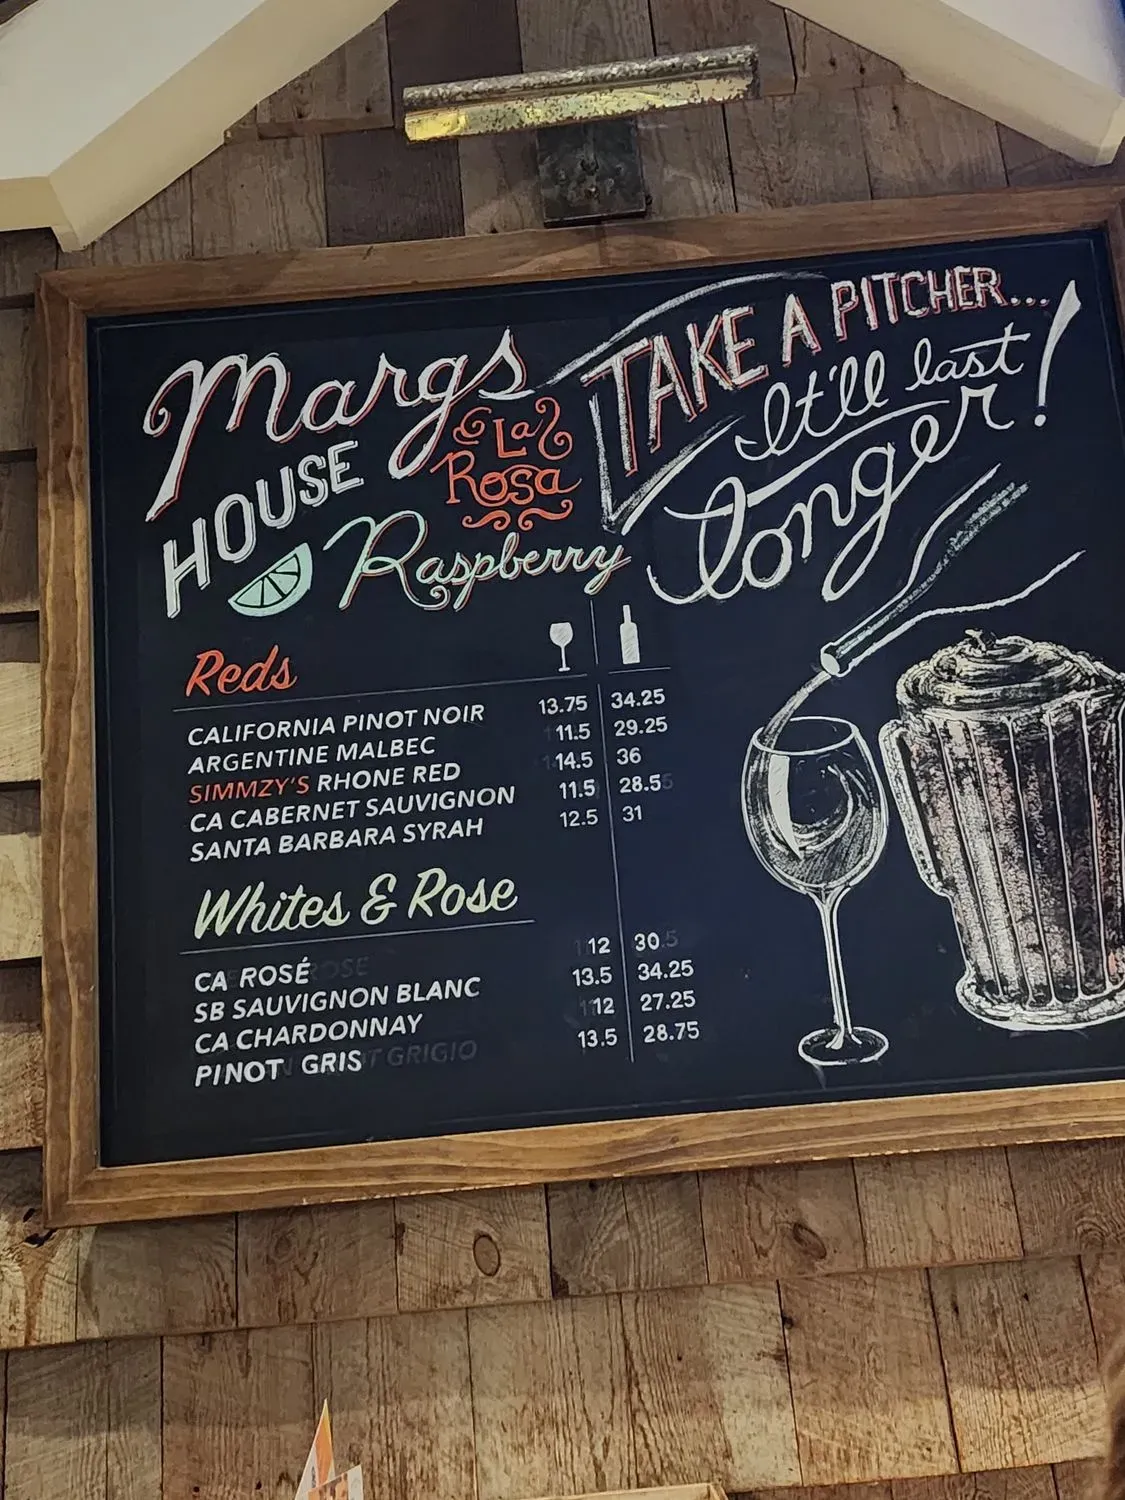 Margs
La
Rosa
HOUSE
Raspberry
TAKE A PITCHER...
It'll last
longer!
Reds
CALIFORNIA PINOT NOIR 13.75 34.25
ARGENTINE MALBEC 11.5 29.25
SIMMZY'S RHONE RED 14.5 36
CA CABERNET SAUVIGNON 11.5 28.5
SANTA BARBARA SYRAH 12.5 31
Whites & Rose
CA ROSÉ 12 30
SB SAUVIGNON BLANC 13.5 34.25
CA CHARDONNAY 12 27.25
PINOT GRIS 13.5 28.75